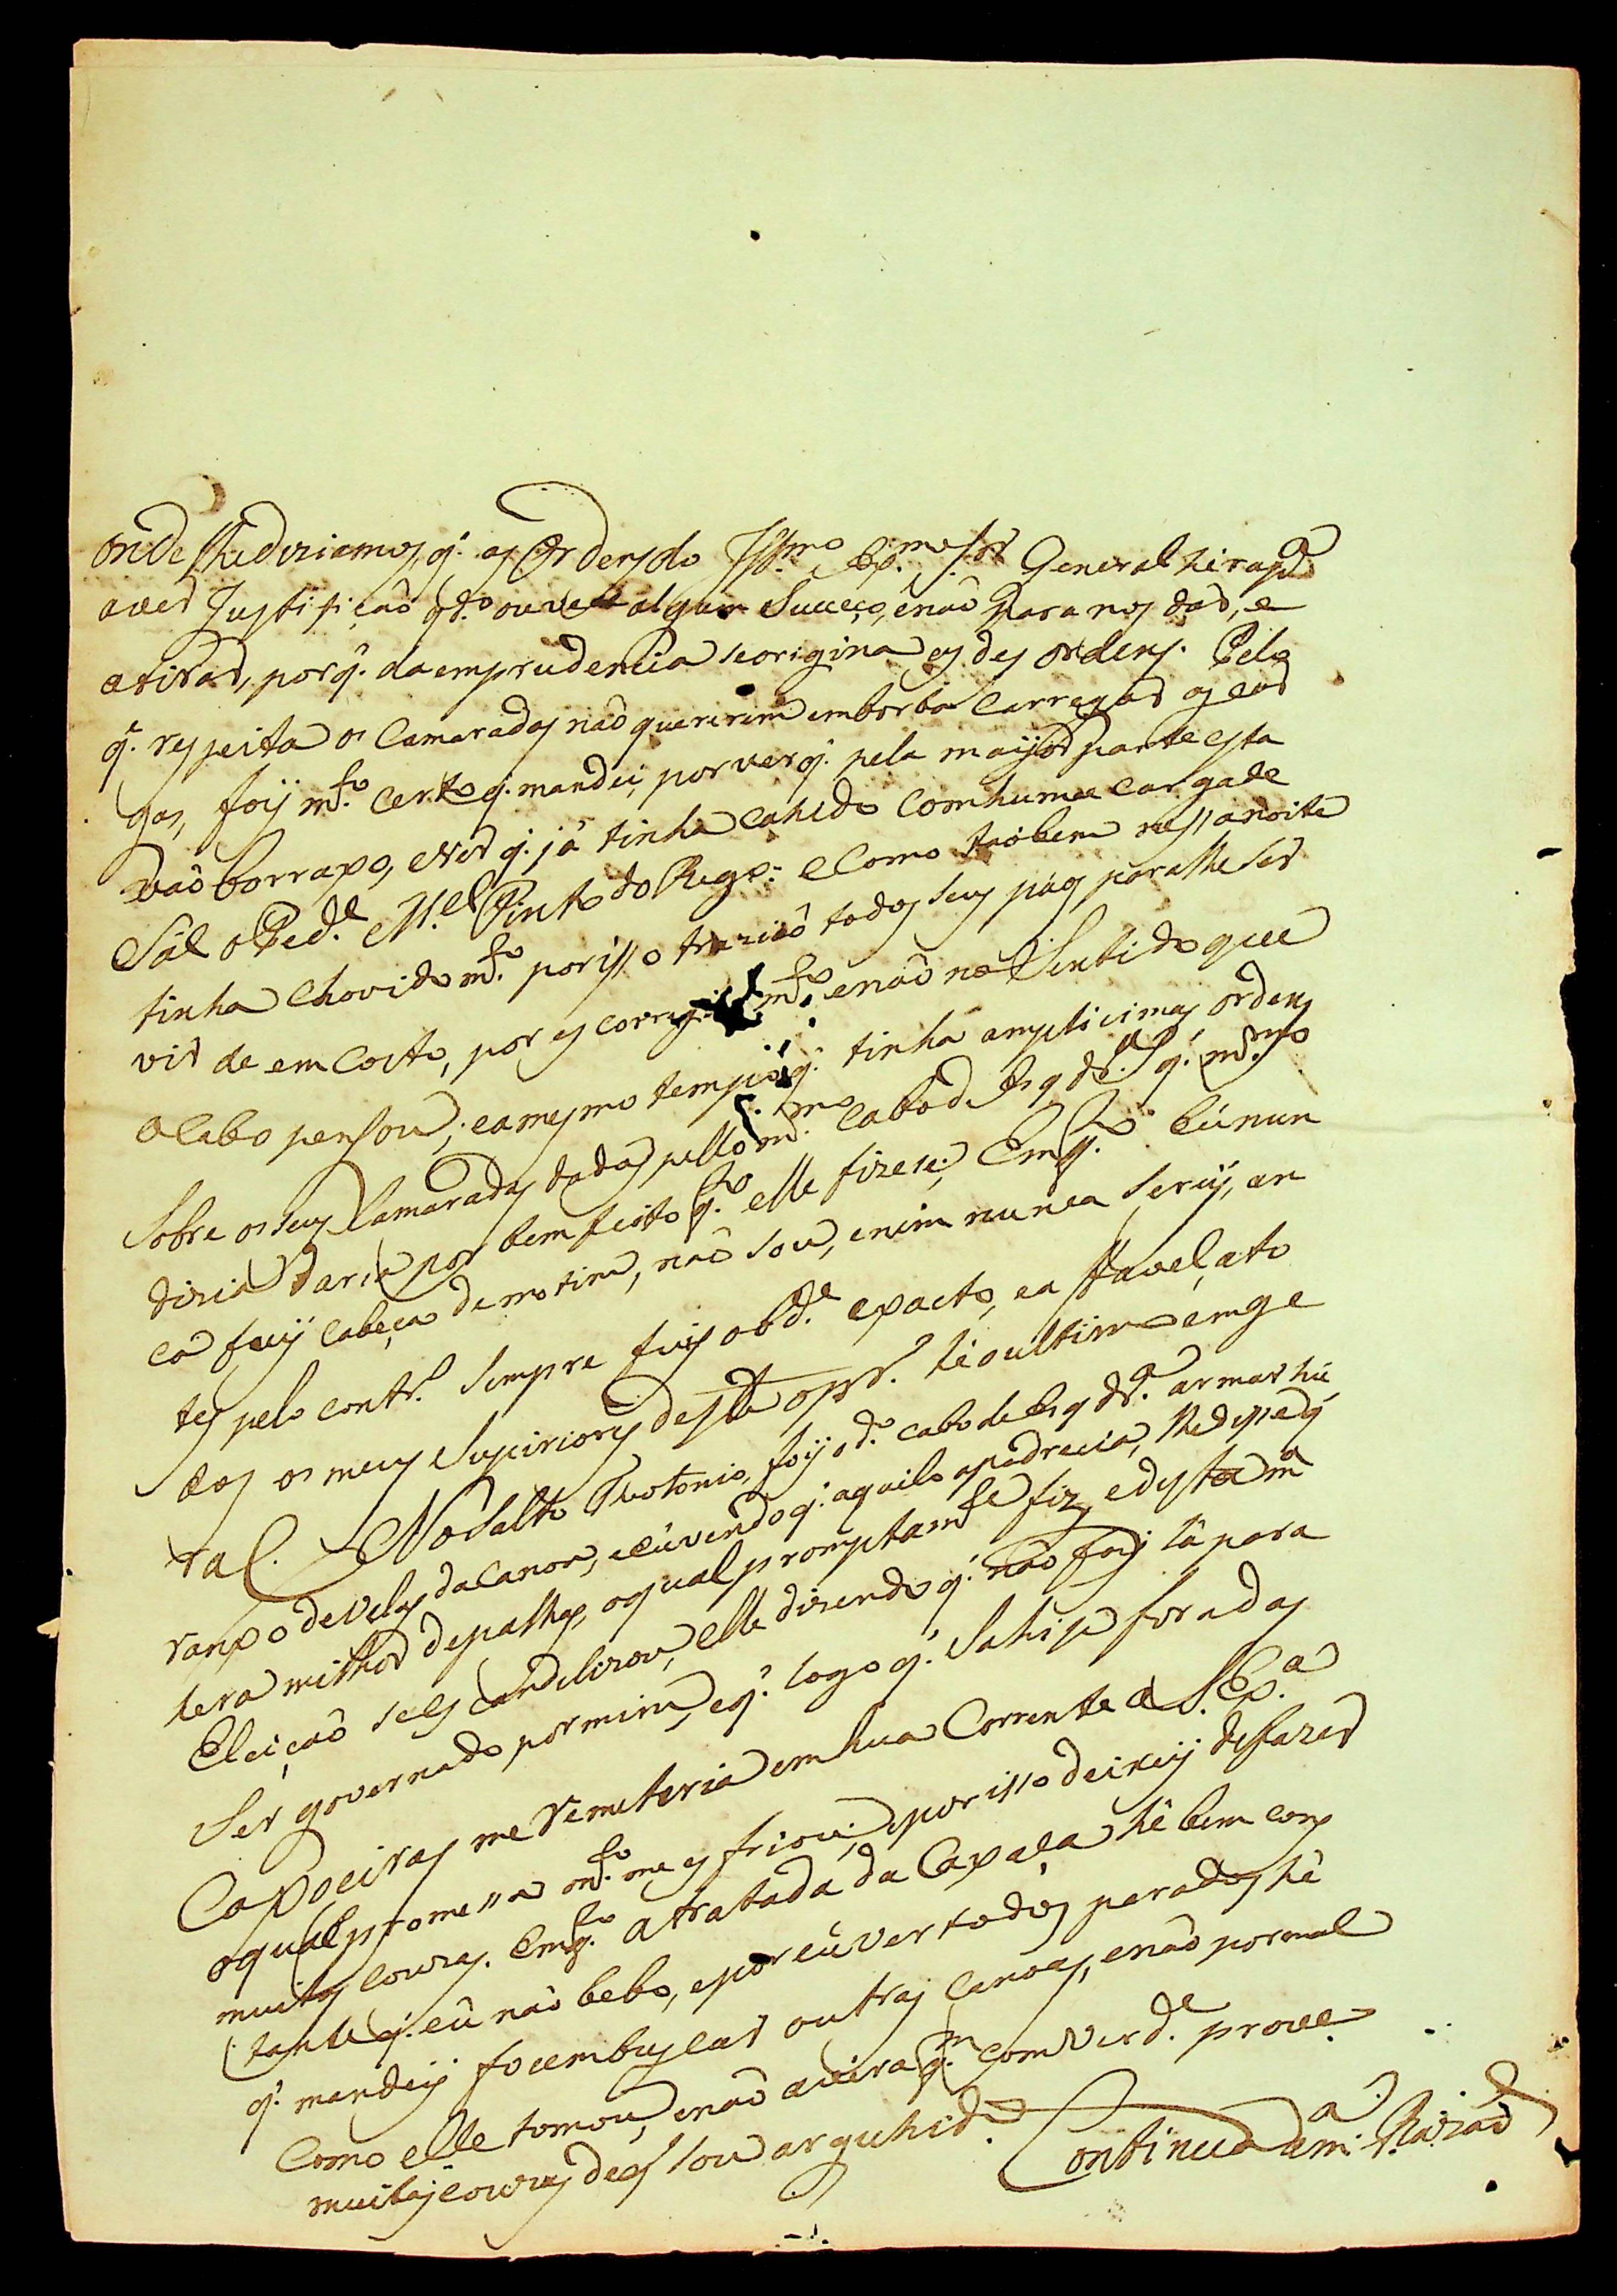 onde lhe diriamos, q̃. as Ordens do Ill.mo e Ex.mo S.r General hera p.a
aver Justificaçaõ q.do ouvesse algum Suceço, enaõ para nos dar, e
atirar, porq̃. da emprudencia se origina es des ordens. Pelo
q̃. respeita os Camaradas naõ quererem emborba Carregar os car
gas, foij m.to certo q̃. mandei, por ver q̃. pela maijor parte esta
vaõ borraxo, e ver q̃. já tinha cahido com huma carga de
Sal o Ped.e M.el Pinto do Rego: e Como taõbem nessa noite
tinha chovido m.to por isso traziaõ todos seus páos para lhe ser
vir de em Costo, por es corregar m.to, enaõ no Sentido que
o Cabo pensou; eamesmo tempo q̃. tinha amplicimas ordens
Sobre os seus Camaradas dadas pello m.mo Cabo de Esq dr.a q̃. m.mo
diria daria por bem feito q.to elle fizese; Emq.to eú nun
ca fuij cabeça de motim, naõ sou, enim nunca serij, an
tes pelo contr.o Sempre fuij obd.e exacto, ea ffavel, ato
dos os meus Supiriores desta opr. té oultimo emge
ral. No Salto Tuotonio, foij o d.o cabo de Esq dr.a armar hú
ranxo de Velas da Canoa, e eú vendo q̃. aquilo apodrecia, lhe disse q̃
hera milhor de palha, o qual promptam.te fiz, e desta m.a
Eleiçaõ se es candelizou, elle dizendo q̃. naõ foij lá para
Ser governado por mim, eq̃. logo q̃. Sahise fora das
Capoeiras me remeteria em hua Corrente a S. Ex.a
o qual promessa m.to me es friou, epor isso deixeij de fazer
muitas couzas. Emq.to a tratada da Caxaça hé bem cons
tante q̃. eú naõ bebo, epor eú ver todos parados hé
q̃. mandeij foce embuscar outras Canoas, enaõ por mal
Como elle tomou, enaõ avera q.m com Verd.e prove
muitas couzas de q̃ sou arguhido. Continua a m.a Razaõ